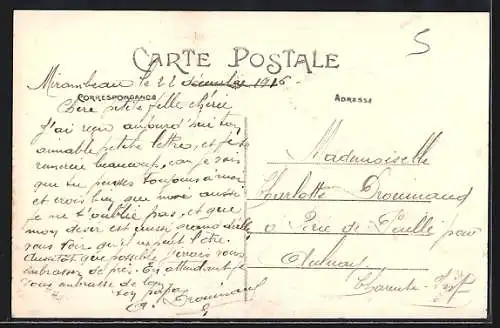 5
CARTE POSTALE
Mirambeau le 22 décembre 1916
CORRESPONDANCE
ADRESSE
Chère petite fille chérie
J'ai reçu aujourd'hui ton
aimable petite lettre, et je te
remercie beaucoup, car je vois
que tu penses toujours à moi
et crois bien que moi aussi
je ne t'oublie pas, et que
mon désir est aussi grand
vous voir qu'il
Aussitôt que possible j'irais vous
embrasser de près. En attendant je
vous embrasse de loin
ton papa
A. Drouinaud
Mademoiselle
Charlotte Drouinaud
à de par
Aulnay
Charente Inf